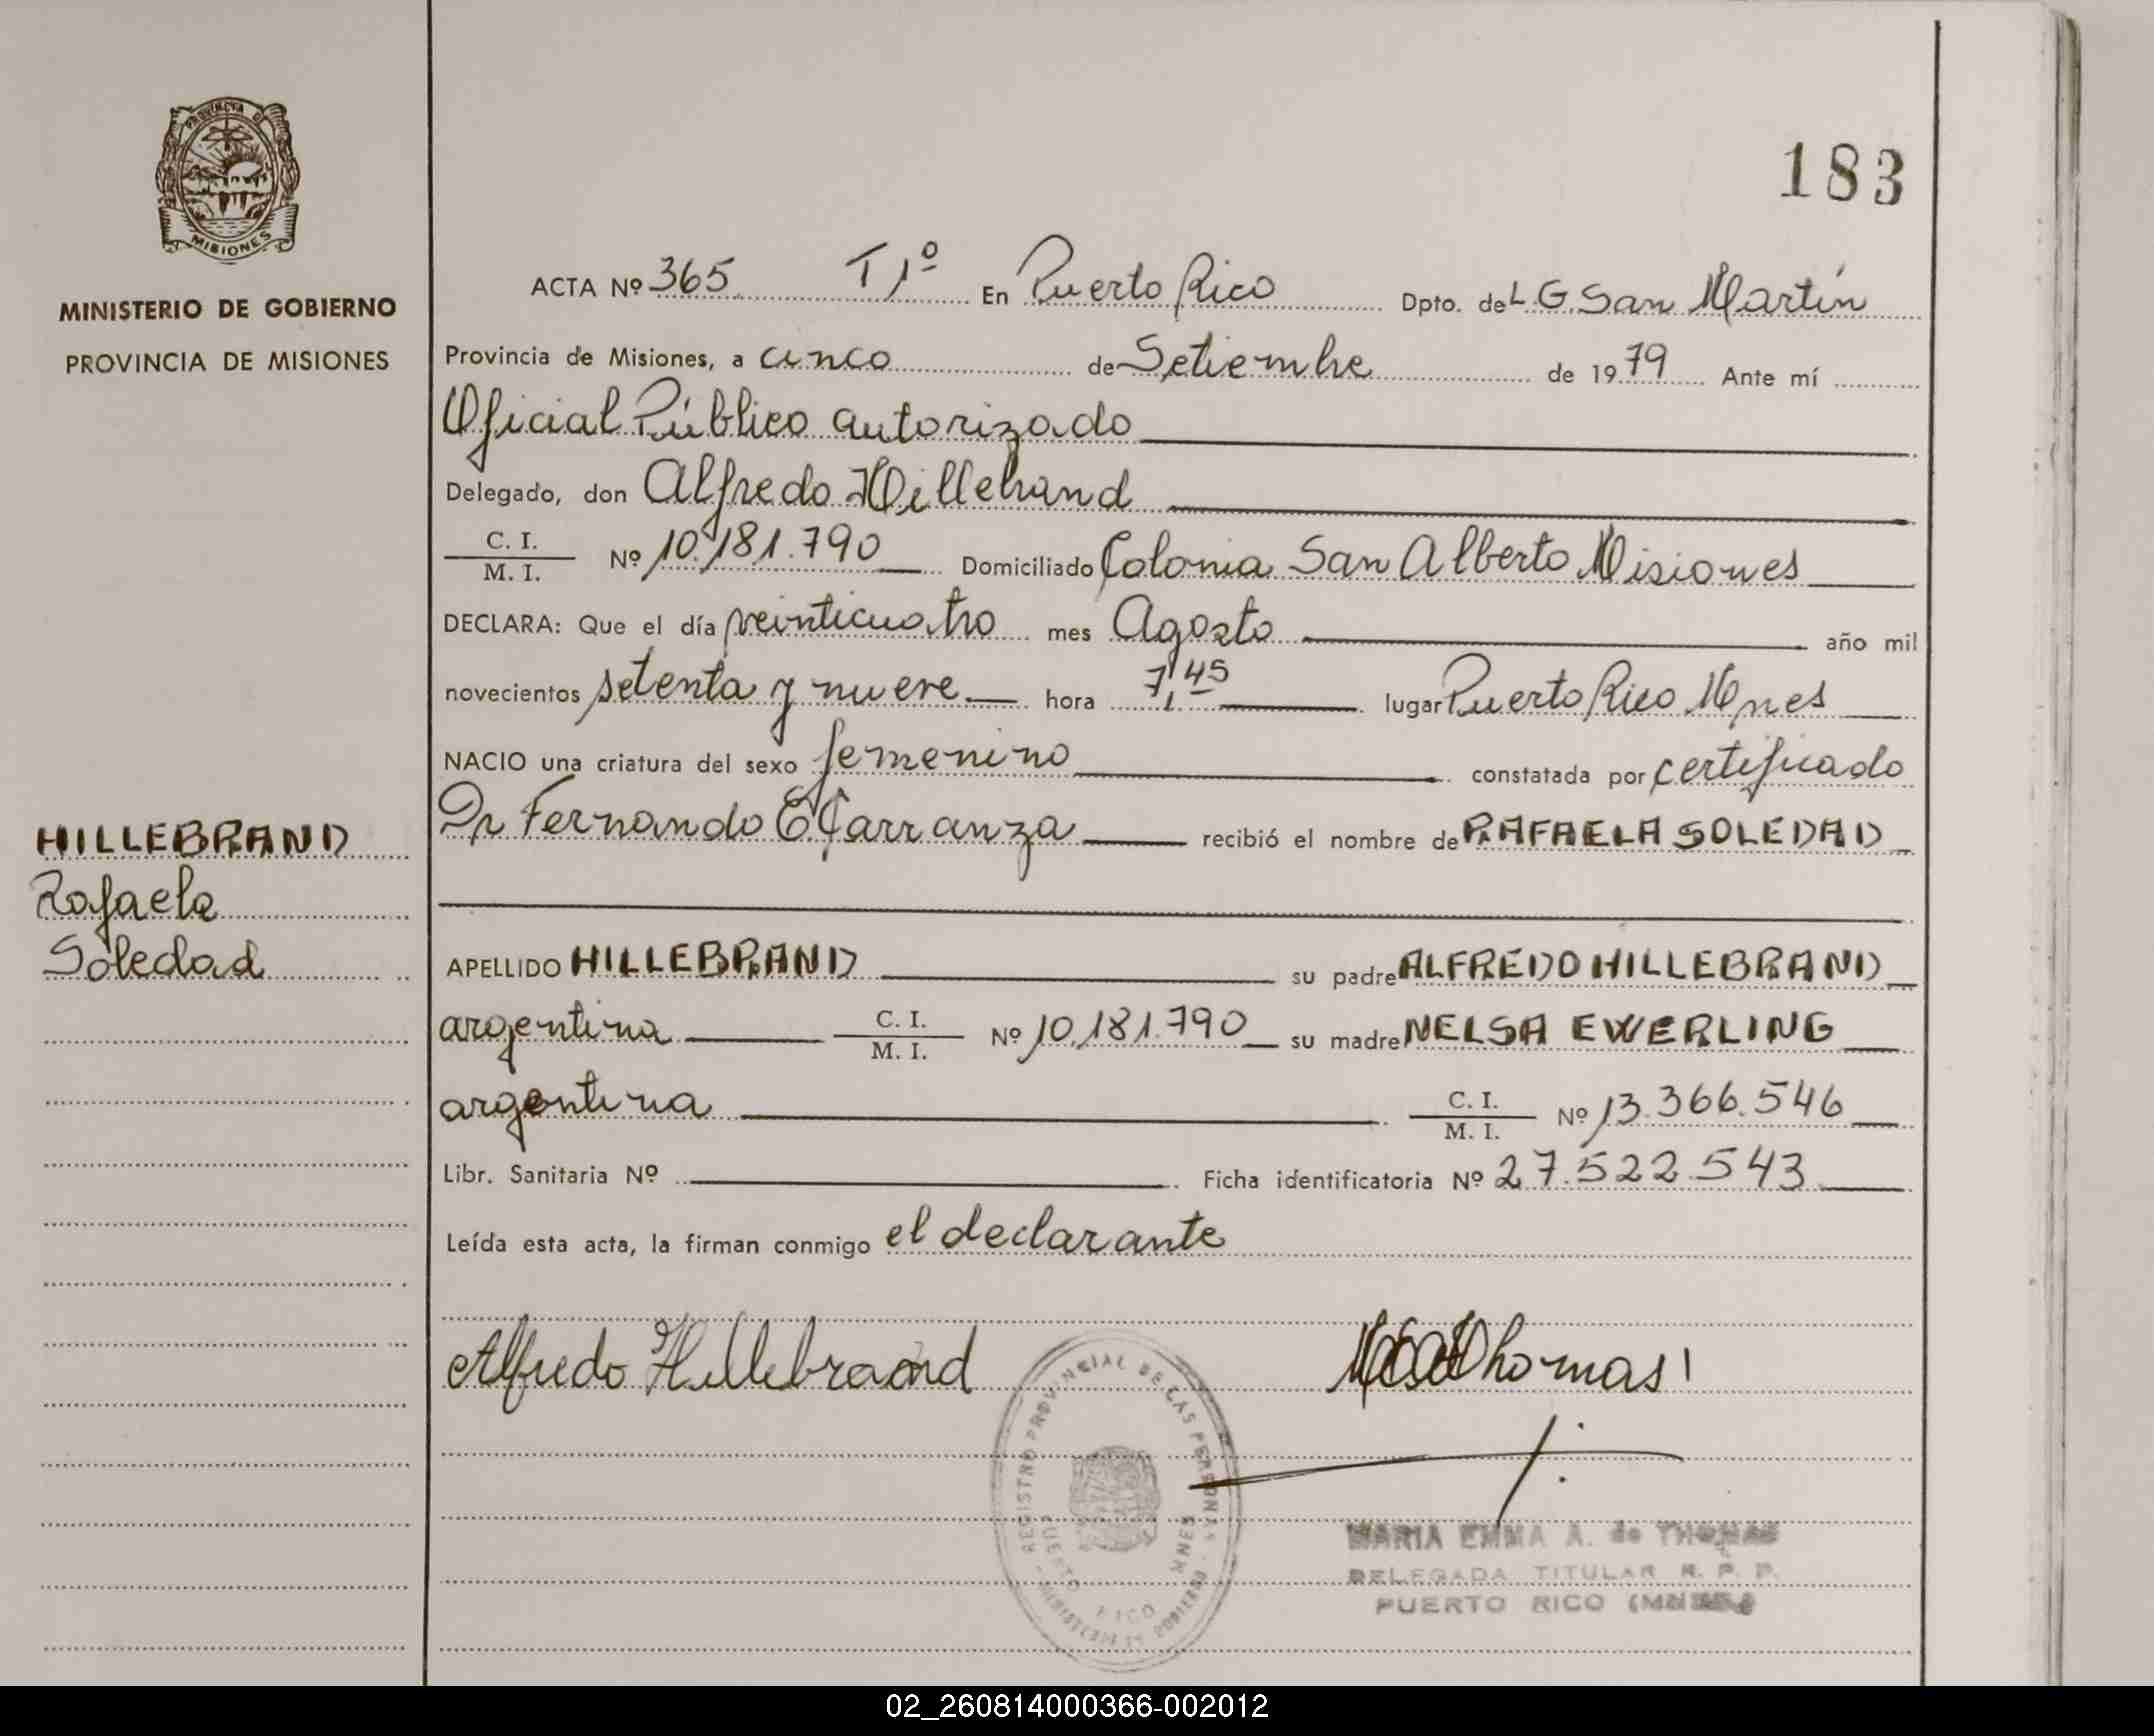 183
PROVINCIA D
MISIONES
MINISTERIO DE GOBIERNO
PROVINCIA DE MISIONES
ACTA Nº 365 T 1º En Puerto Rico Dpto. de L.G. San Martín
Provincia de Misiones, a cinco de Setiembre de 1979 Ante mí
Oficial Público autorizado
Delegado, don Alfredo Hillebrand
C. I.
M. I.
Nº 10.181.790 Domiciliado Colonia San Alberto Misiones
DECLARA: Que el día veinticuatro mes Agosto año mil
novecientos setenta y nueve hora 7,45 lugar Puerto Rico Mnes
NACIO una criatura del sexo femenino constatada por certificado
Dr Fernando E Carranza recibió el nombre de RAFAELA SOLEDAD
HILLEBRAND
Rafaela
Soledad
APELLIDO HILLEBRAND su padre ALFREDO HILLEBRAND
argentina C. I. M. I. Nº 10.181.790 su madre NELSA EWERLING
argentina C. I. M. I. Nº 13.366.546
Libr. Sanitaria Nº Ficha identificatoria Nº 27.522.543
Leída esta acta, la firman conmigo el declarante
Alfredo Hillebrand Thomas
REGISTRO PROVINCIAL DE LAS PERSONAS
PUERTO RICO MNES
MARIA EMMA A. de THOMAS
DELEGADA TITULAR R. P. P.
PUERTO RICO (MNES.)
02_260814000366-002012